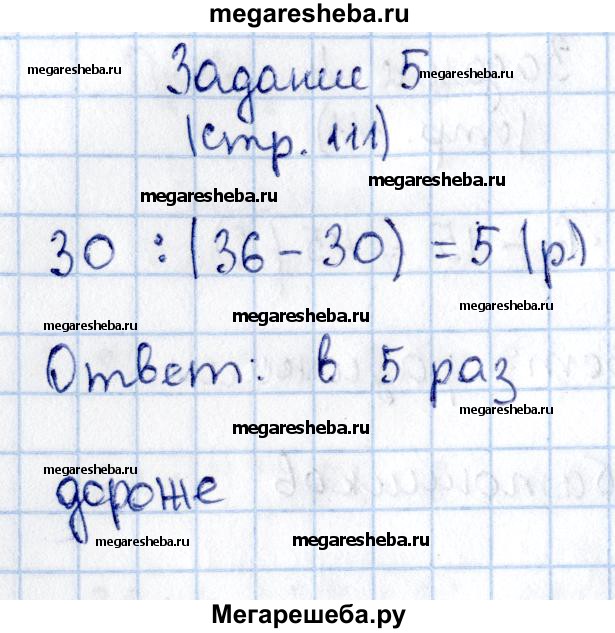 megaresheba.ru
megaresheba.ru
Задание 5
megaresheba.ru
(стр. 111)
megaresheba.ru
megaresheba.ru
30 : (36 - 30) = 5 (р.)
megaresheba.ru
megaresheba.ru
megaresheba.ru
Ответ: в 5 раз
megaresheba.ru
megaresheba.ru
megaresheba.ru
дороже
megaresheba.ru
megaresheba.ru
Мегарешеба.ру